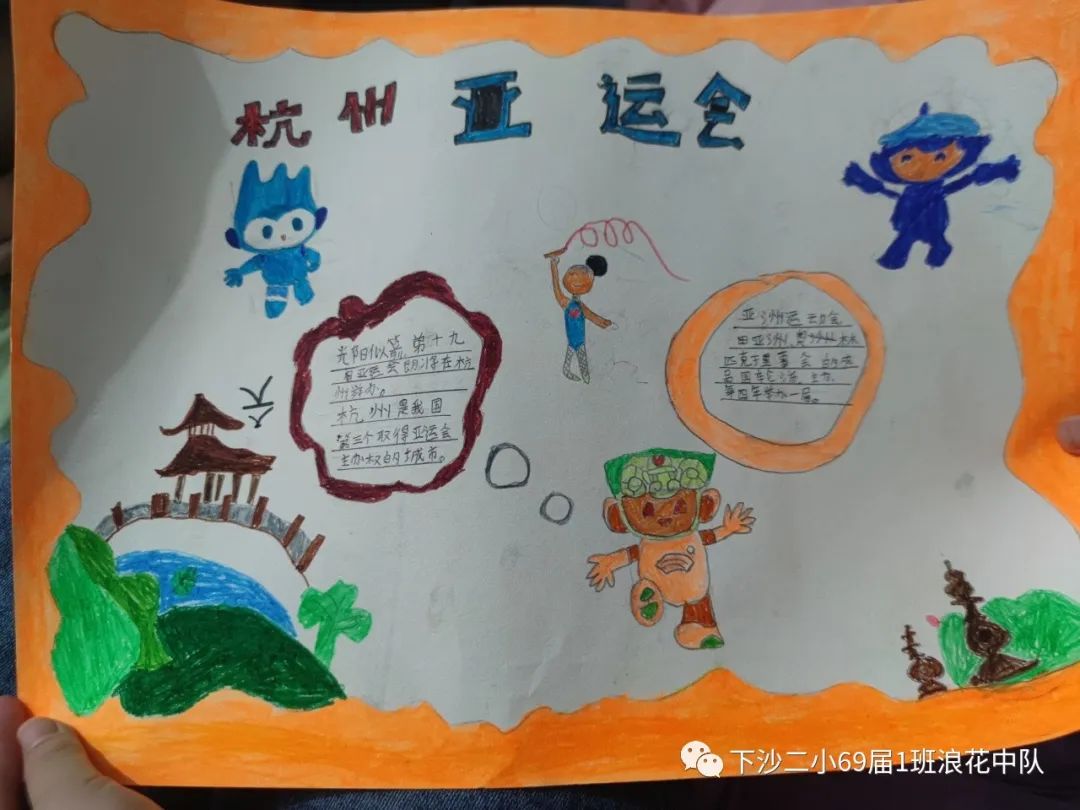 杭州亚运会
光阳似箭 第十九
届亚运会即将在杭
州举办。
杭州是我国
第三个取得亚运会
主办权的城市。
亚洲运动会
由亚洲奥林
匹克理事会的成
员国轮流主办,
第四年举办一届。
下沙二小69届1班浪花中队